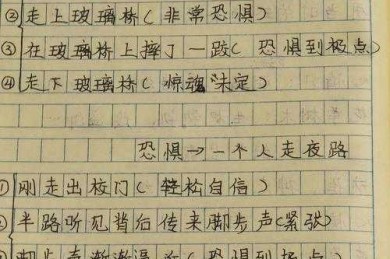 ②走上玻璃桥(非常恐惧)
③在玻璃桥上摔了一跤(恐惧到极点)
④走下玻璃桥(惊魂未定)
恐惧→一个人走夜路
①刚走出校门(轻松自信)
②半路听见背后传来脚步声(紧张)
脚步声渐渐逼近(恐惧到极点)